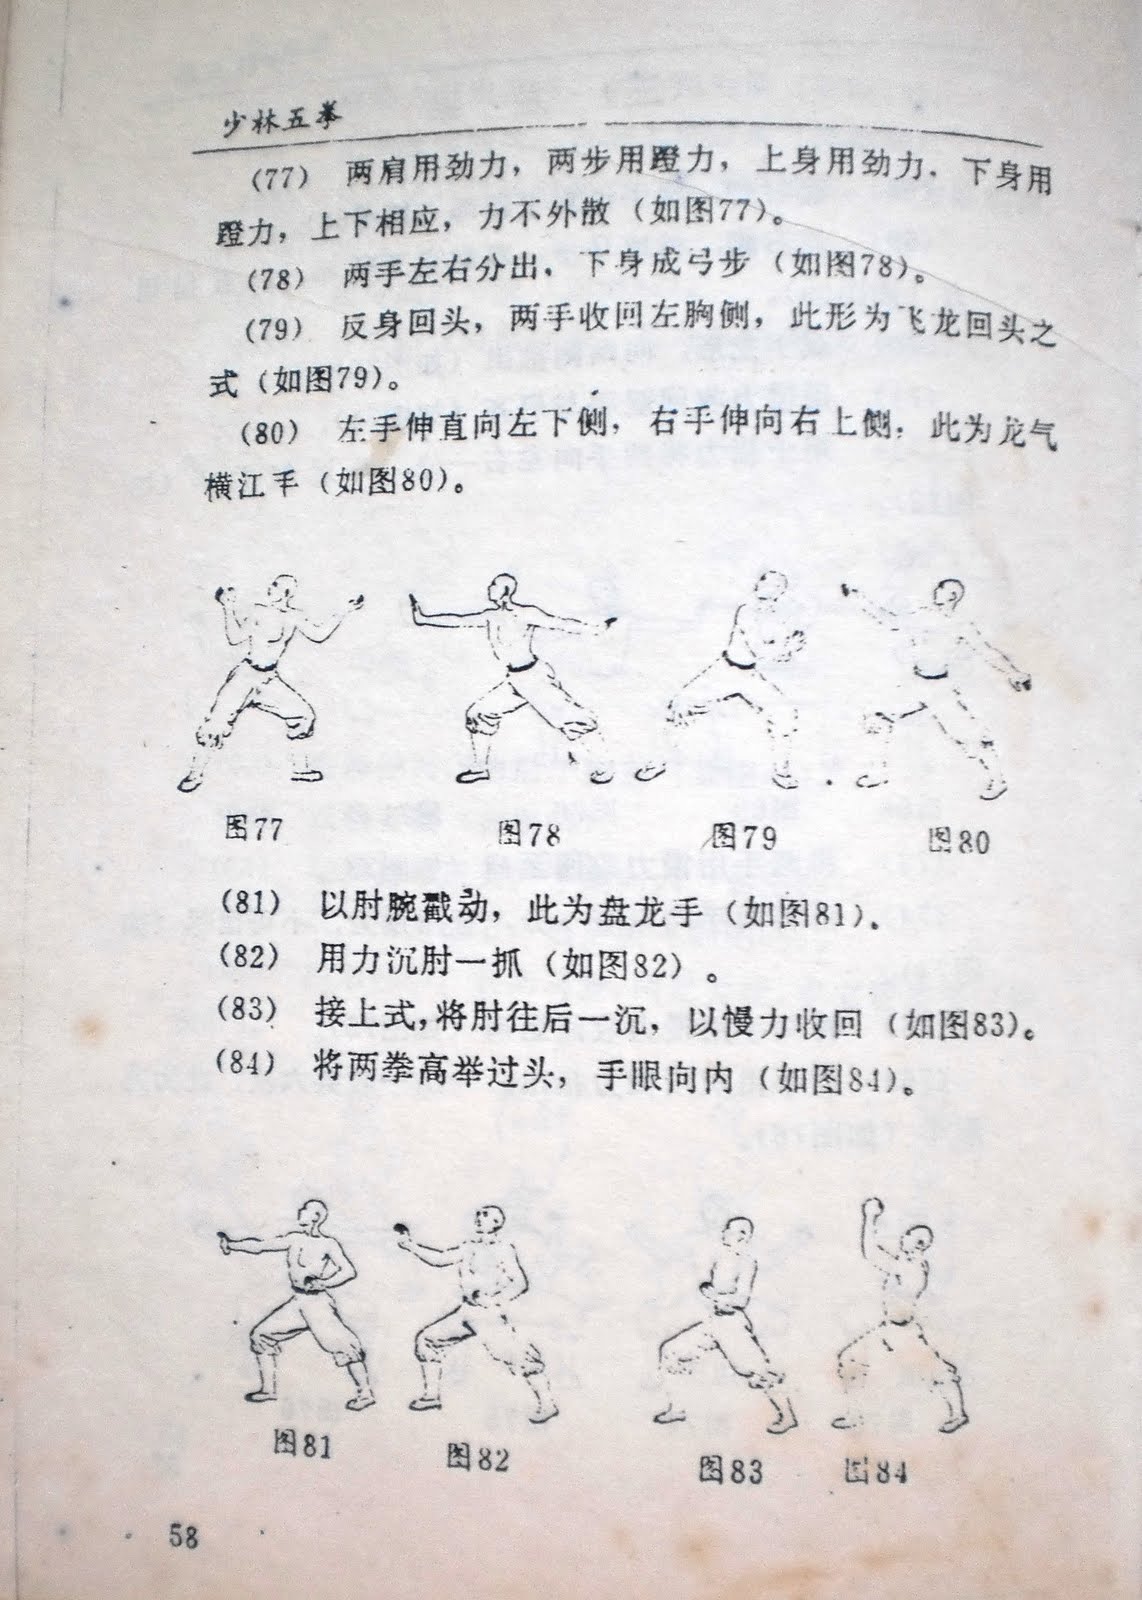 少林五拳
(77) 两肩用劲力，两步用蹬力，上身用劲力，下身用
蹬力，上下相应，力不外散（如图77）。
(78) 两手左右分出，下身成弓步（如图78）。
(79) 反身回头，两手收回左胸侧，此形为飞龙回头之
式（如图79）。
(80) 左手伸直向左下侧，右手伸向右上侧，此为龙气
横江手（如图80）。
图77 图78 图79 图80
(81) 以肘腕戳动，此为盘龙手（如图81）。
(82) 用力沉肘一抓（如图82）。
(83) 接上式，将肘往后一沉，以慢力收回（如图83）。
(84) 将两拳高举过头，手眼向内（如图84）。
图81 图82 图83 图84
58